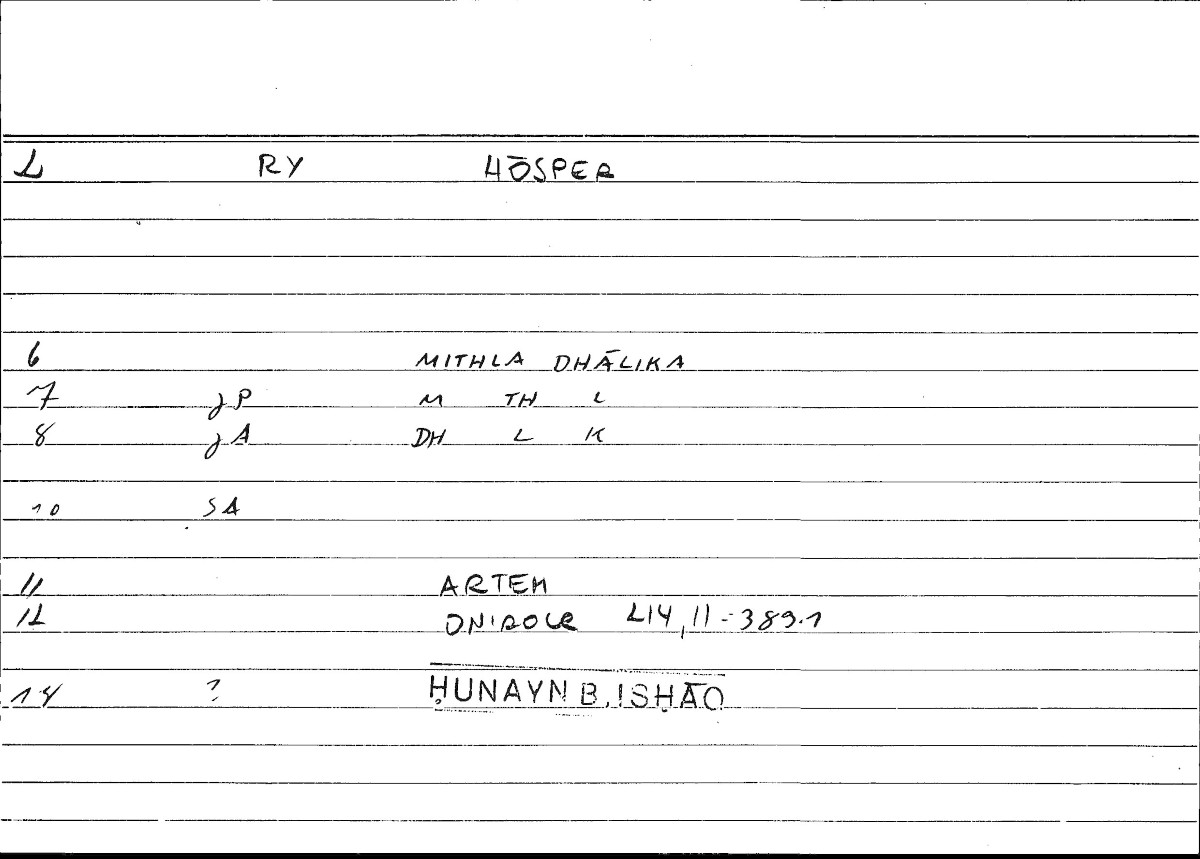 2 RY HŌSPER
6 MITHLA DHĀLIKA
7 JP M TH L
8 JA DH L K
10 SA
11 ARTEM
12 ONIROCR 214,11-389.1
14 ? ḤUNAYN B. ISḤĀQ